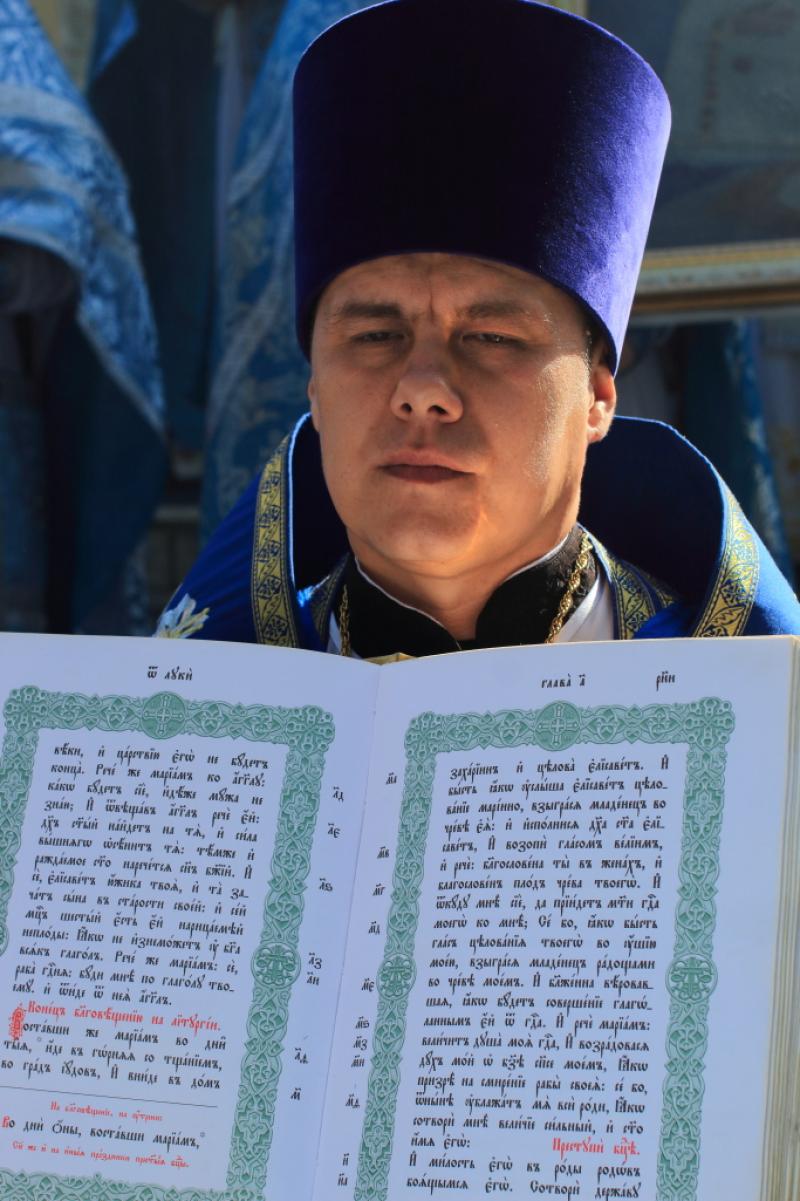 Ѿ лꙋкѝ
вѣ́ки, и҆ ца́рствїю є҆гѡ̀ не бꙋ́детъ
конца̀. Рече́ же марїа́мъ ко а҆́гг҃лꙋ:
ка́кѡ бꙋ́детъ сїѐ, и҆дѣ́же мꙋ́жа не
зна́ю; И҆ ѿвѣща́въ а҆́гг҃лъ речѐ є҆́й:
дх҃ъ ст҃ы́й на́йдетъ на тѧ̀, и҆ си́ла
вы́шнѧгѡ ѡ҆сѣни́тъ тѧ̀: тѣ́мже и҆
ражда́емое ст҃о нарече́тсѧ сн҃ъ бж҃їй. И҆
сѐ, є҆лїсаве́тъ ю҆́жика твоѧ̀, и҆ та̀ за-
ча́тъ сы́на въ ста́рости свое́й: и҆ се́й
мц҃ъ шесты́й є҆́сть є҆́й нарица́емѣй
непло́ды: Ꙗ҆́кѡ не и҆знемо́жетъ ᲂу҆ бг҃а
всѧ́къ глаго́лъ. Рече́ же марїа́мъ: сѐ,
раба̀ гдⷭ҇нѧ: бꙋ́ди мнѣ̀ по глаго́лꙋ тво-
емꙋ̀. и҆ ѿи́де ѿ неѧ̀ а҆́гг҃лъ.
Коне́цъ бл҃говѣ́щенїю на лїтꙋргі́и.
Воста́вши же марїа́мъ во дни̑
ты̑ѧ, и҆́де въ гѡ́рнѧѧ со тща́нїемъ,
во гра́дъ і҆ꙋ́довъ, И҆ вни́де въ до́мъ
На бл҃говѣ́щенїе, на ᲂу҆́трени:
Во дни̑ ѻ҆́ны, воста́вши марїа́мъ,
Сїѐ же и҆ на и҆́ныѧ пра́здники прест҃ы́ѧ бц҃ы.
л҃д
л҃є
л҃ѕ
л҃з
л҃и
л҃ѳ
м҃
глава̀ а҃
рн҃и
заха́рїинъ и҆ цѣлова̀ є҆лїсаве́тъ. И҆
бы́сть ꙗ҆́кѡ ᲂу҆слы́ша є҆лїсаве́тъ цѣло-
ва́нїе марі́ино, взыгра́сѧ младе́нецъ во
чре́вѣ є҆ѧ̀: и҆ и҆спо́лнисѧ дх҃а ст҃а є҆лї-
саве́тъ, И҆ возопѝ гла́сомъ ве́лїимъ,
и҆ речѐ: благослове́на ты̀ въ жена́хъ, и҆
благослове́нъ пло́дъ чре́ва твоегѡ̀. И҆
ѿкꙋ́дꙋ мнѣ̀ сїѐ, да прїи́детъ мт҃и гдⷭ҇а
моегѡ̀ ко мнѣ̀; Се́ бо, ꙗ҆́кѡ бы́сть
гла́съ цѣлова́нїѧ твоегѡ̀ во ᲂу҆́шїю
мое́ю, взыгра́сѧ младе́нецъ ра́дощами
во чре́вѣ мое́мъ. И҆ бл҃же́нна вѣ́ровав-
шаѧ, ꙗ҆́кѡ бꙋ́детъ соверше́нїе глаго́-
ланнымъ є҆́й ѿ гдⷭ҇а. И҆ речѐ марїа́мъ:
вели́читъ дꙋша̀ моѧ̀ гдⷭ҇а, И҆ возра́довасѧ
дꙋ́хъ мо́й ѡ҆ бз҃ѣ сп҃сѣ мое́мъ, Ꙗ҆́кѡ
призрѣ̀ на смире́нїе рабы̀ своеѧ̀: се́ бо,
ѿнн҃ѣ ᲂу҆блажа́тъ мѧ̀ всѝ ро́ди, Ꙗ҆́кѡ
сотворѝ мнѣ̀ вели́чїе си́льный, и҆ ст҃о
и҆́мѧ є҆гѡ̀:
Престꙋпѝ бц҃ѣ.
И҆ ми́лость є҆гѡ̀ въ ро́ды родѡ́въ
боѧ́щымсѧ є҆гѡ̀. Сотворѝ держа́вꙋ
м҃а
м҃в
м҃г
м҃д
м҃є
м҃ѕ
м҃з
м҃и
м҃ѳ
н҃
н҃а